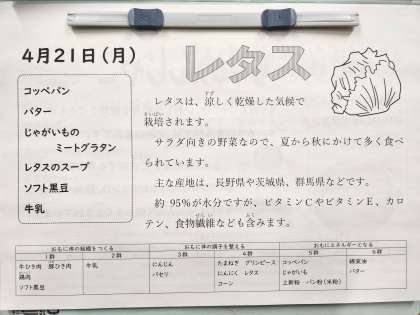 4月21日(月)
レタス
コッペパン
バター
じゃがいもの
ミートグラタン
レタスのスープ
ソフト黒豆
牛乳
レタスは、涼しく乾燥した気候で
栽培されます。
サラダ向きの野菜なので、夏から秋にかけて多く食べ
られています。
主な産地は、長野県や茨城県、群馬県などです。
約 95%が水分ですが、ビタミンCやビタミンE、カロ
テン、食物繊維なども含みます。
おもに体の組織をつくる
おもに体の調子を整える
おもにエネルギーとなる
1群 2群 3群 4群 5群 6群
牛ひき肉 豚ひき肉
鶏肉
ソフト黒豆
牛乳
にんじん
パセリ
たまねぎ グリンピース
にんにく レタス
コーン
コッペパン
じゃがいも
上新粉 パン粉(米粉)
綿実油
バター